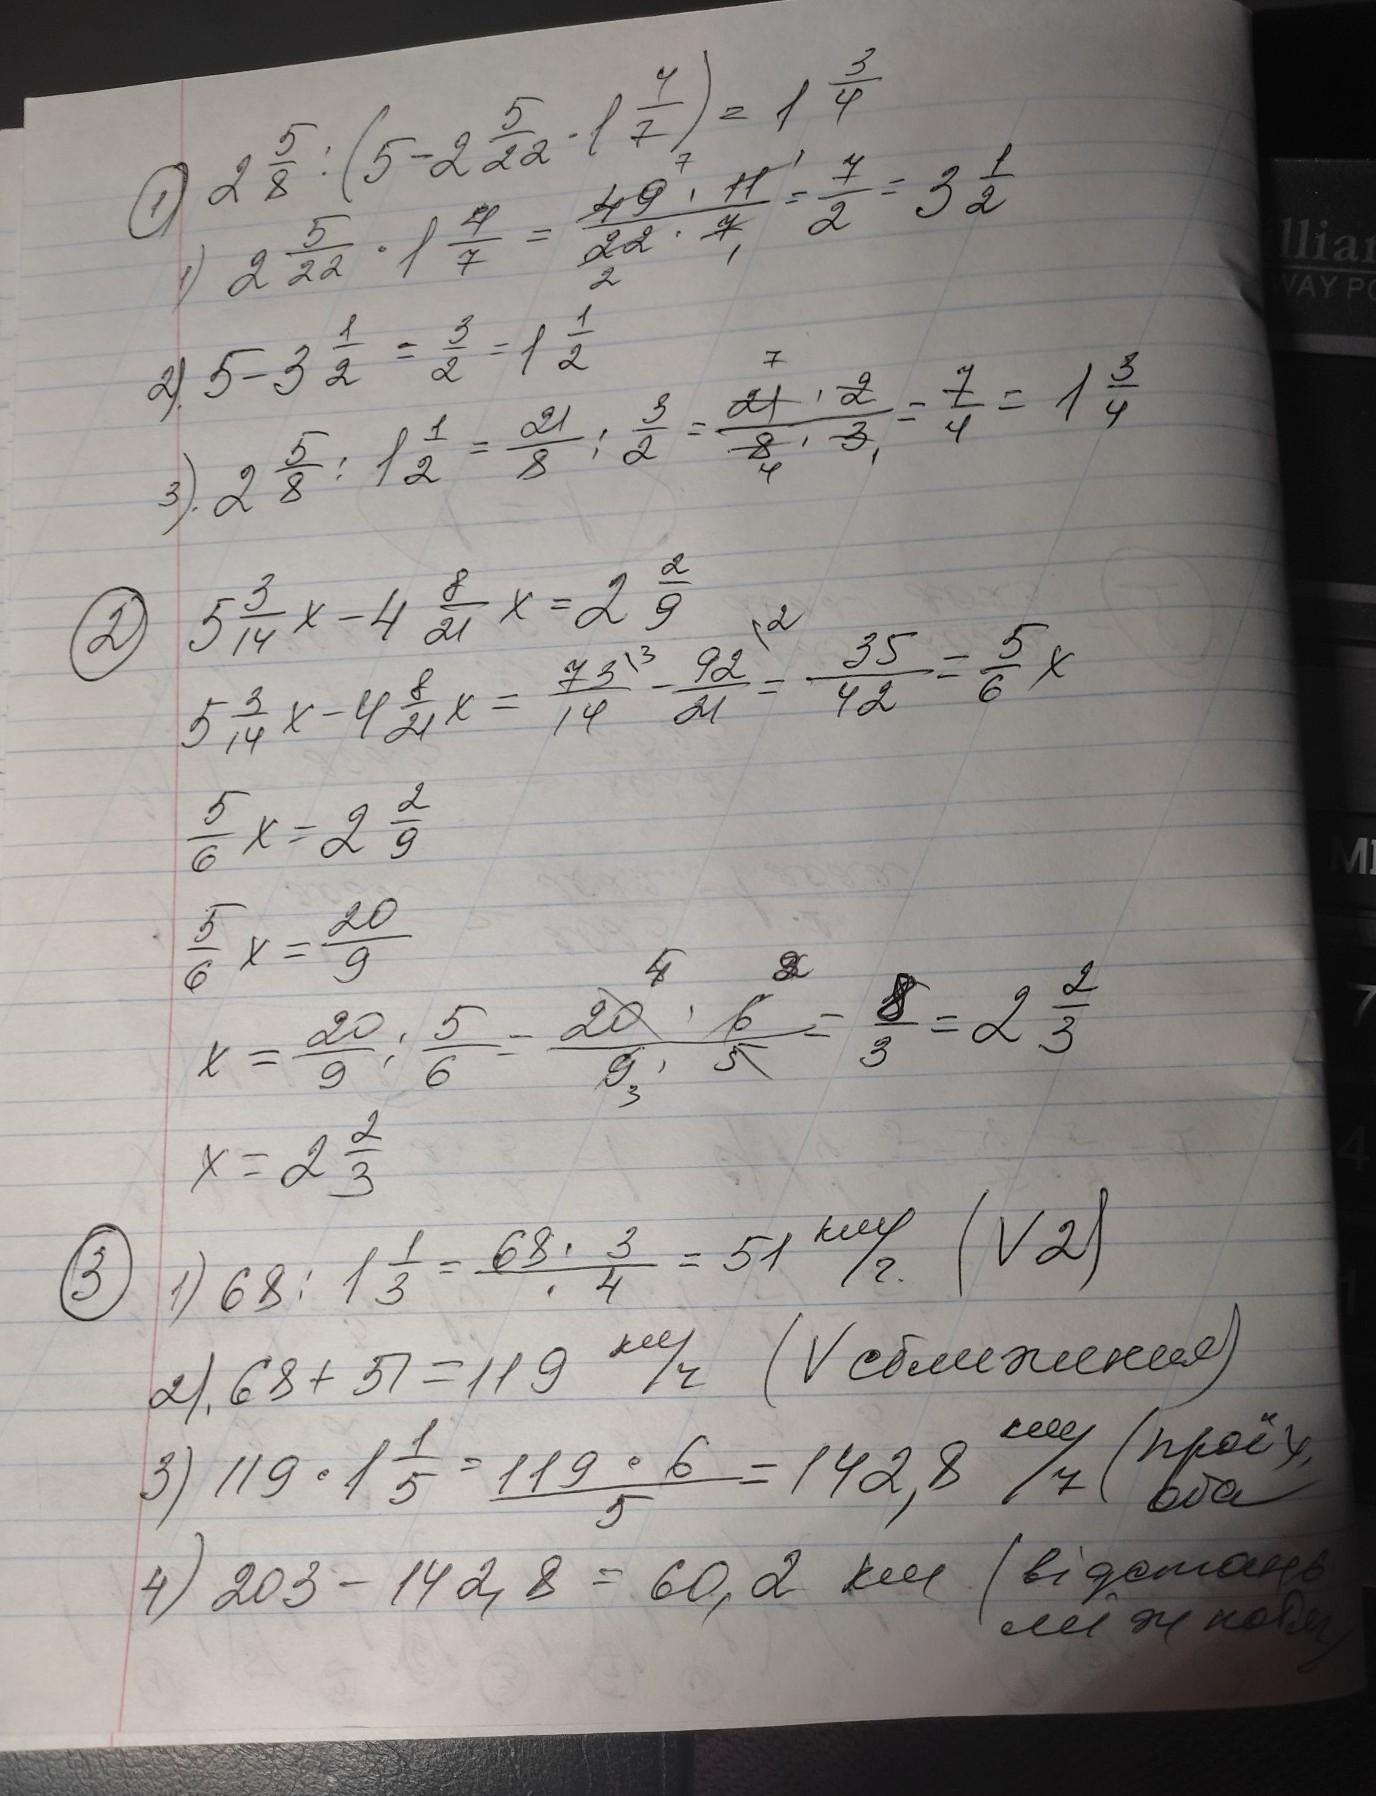 ① 2 5/8 : (5 - 2 5/22 · 1 4/7) = 1 3/4
1) 2 5/22 · 1 4/7 = 49 · 11 / 22 · 7 = 7/2 = 3 1/2
2). 5 - 3 1/2 = 3/2 = 1 1/2
3). 2 5/8 : 1 1/2 = 21/8 : 3/2 = 21 · 2 / 8 · 3 = 7/4 = 1 3/4
② 5 3/14 x - 4 8/21 x = 2 2/9
5 3/14 x - 4 8/21 x = 73\3 / 14 - 92\2 / 21 = 35/42 = 5/6 x
5/6 x = 2 2/9
5/6 x = 20/9
x = 20/9 : 5/6 = 20 · 6 / 9 · 5 = 8/3 = 2 2/3
x = 2 2/3
③ 1) 68 : 1 1/3 = 68 · 3 / 4 = 51 км/г. (V2)
2). 68 + 51 = 119 км/ч (V сближения)
3) 119 · 1 1/5 = 119 · 6 / 5 = 142,8 км/ч (проїх.
оба
4) 203 - 142,8 = 60,2 км (відстань
між
MI